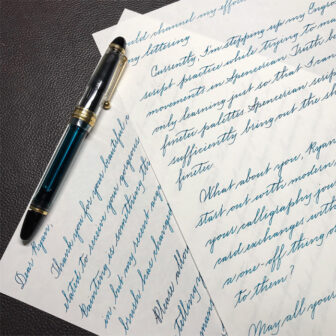 ld channel my effor
ng lettering
Currently, I'm stepping up my Eng
script practice while trying to m
movements in Spencerian. Truth b
only learning just so that I can
finetic palettes. Spencerian scrip
sufficiently bring out the sh
finetic.
What about you, Ryan
start out with modern
your calligraphy jou
card exchanges with
a one-off thing o
to them?
May all your
Dear Ryan,
Thank you for your beautiful
lated to receive your gorgeous
Penmanship is something th
in but my recent
Please allow